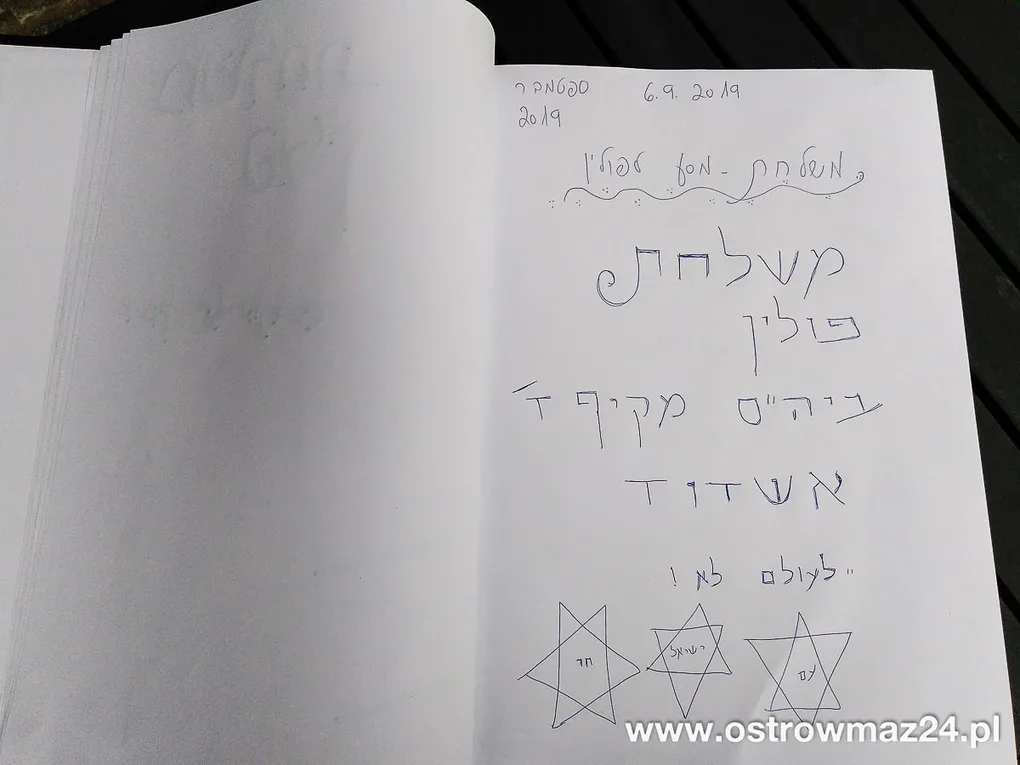 ספטמבר 6.9.2019
2019
משלחת - מסע לפולין
משלחת
פולין
ביה"ס מקיף ד'
אשדוד
"לעולם לא!
עם ישראל חי
www.ostrowmaz24.pl